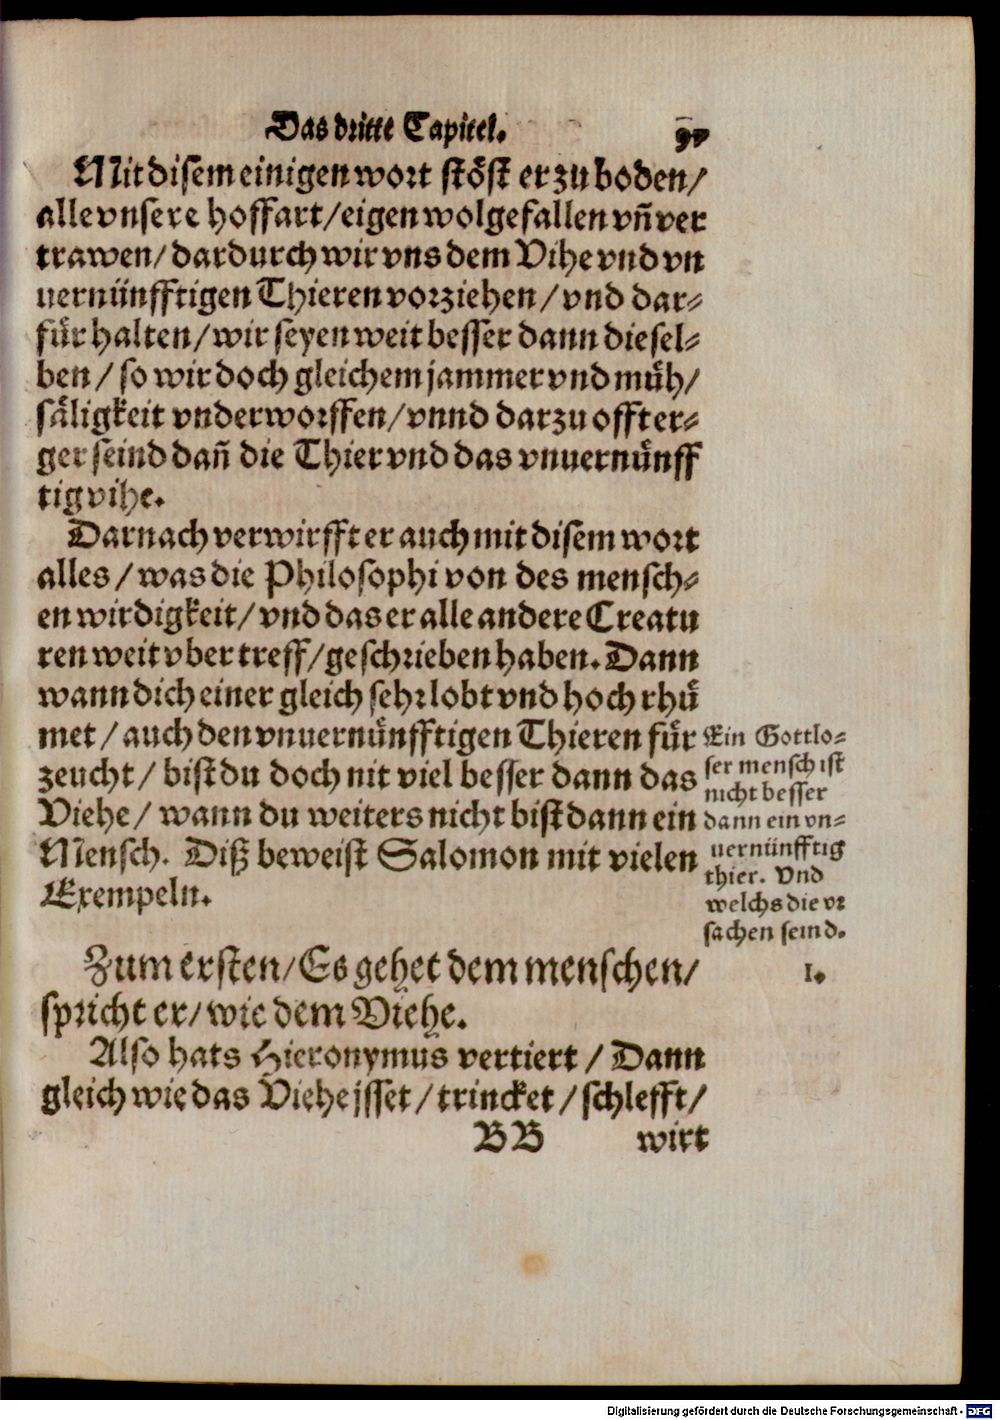 Das dritte Capitel.
Mit disem einigen wort stöst er zu boden/
alle vnsere hoffart/eigen wolgefallen vñ ver
trawen/dardurch wir vns dem Vihe vnd vn
uernünfftigen Thieren vorziehen/vnd dar⸗
für halten/wir seyen weit besser dann diesel⸗
ben/so wir doch gleichem jammer vnd müh/
säligkeit vnderworffen/vnnd darzu offt er⸗
ger seind dañ die Thier vnd das vnuernünff
tig vihe.
Darnach verwirfft er auch mit disem wort
alles/was die Philosophi von des mensch⸗
en wirdigkeit/vnd das er alle andere Creatu
ren weit vbertreff/geschrieben haben. Dann
wann dich einer gleich sehr lobt vnd hoch rhü
met/auch den vnuernünfftigen Thieren für
zeucht/bist du doch nit viel besser dann das
Viehe/wann du weiters nicht bist dann ein
Mensch. Diß beweist Salomon mit vielen
Exempeln.
Ein Gottlo⸗
ser mensch ist
nicht besser
dann ein vn⸗
uernünfftig
thier. Vnd
welchs die vr
sachen seind.
Zum ersten/Es gehet dem menschen/
spricht er/wie dem Viehe.
1.
Also hats Hieronymus vertiert/Dann
gleich wie das Viehe jsset/trincket/schlefft/
BB wirt
Digitalisierung gefördert durch die Deutsche Forschungsgemeinschaft - DFG